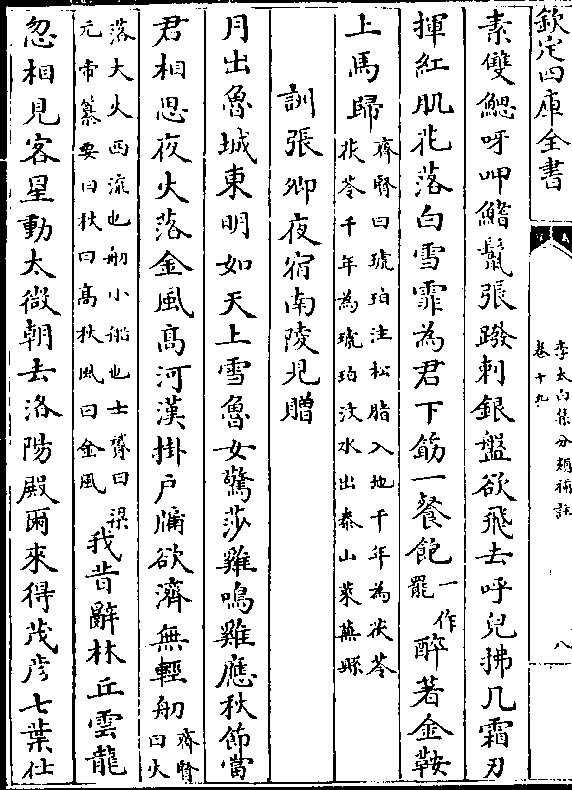 欽定四庫全書
李太白集分類補註
卷十九
八
素雙鰓呀呷鰭鬛張蹳刺銀盤欲飛去呼兒拂几霜刃
揮紅肌花落白雪霏為君下筯一餐飽一作罷醉著金鞍
上馬歸齊賢曰琥珀注松脂入地千年為茯苓
茯苓千年為琥珀汶水出泰山萊蕪縣
訓張卿夜宿南陵見贈
月出魯城東明如天上雪魯女驚莎雞鳴雞應秋節當
君相思夜火落金風高河漢掛户牖欲濟無輕舠齊賢曰火
落大火西流也舠小船也士贇曰梁
元帝纂要曰秋曰高秋風曰金風我昔辭林丘雲龍
忽相見客星動太微朝去洛陽殿爾來得茂彦七葉仕